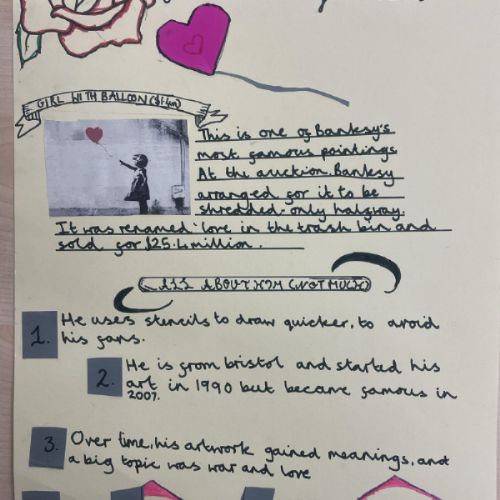 GIRL WITH BALLOON ($1.4m)
This is one of Banksy's
most famous paintings
At the auction, Banksy
arranged for it to be
shredded, only halfway.
It was renamed 'love in the trash bin and
sold for $25.4 million.
ALL ABOUT HIM (NOT MUCH)
1. He uses stencils to draw quicker, to avoid
his fans.
2. He is from bristol and started his
art in 1990 but became famous in
2007.
3. Over time, his artwork gained meanings, and
a big topic was war and love